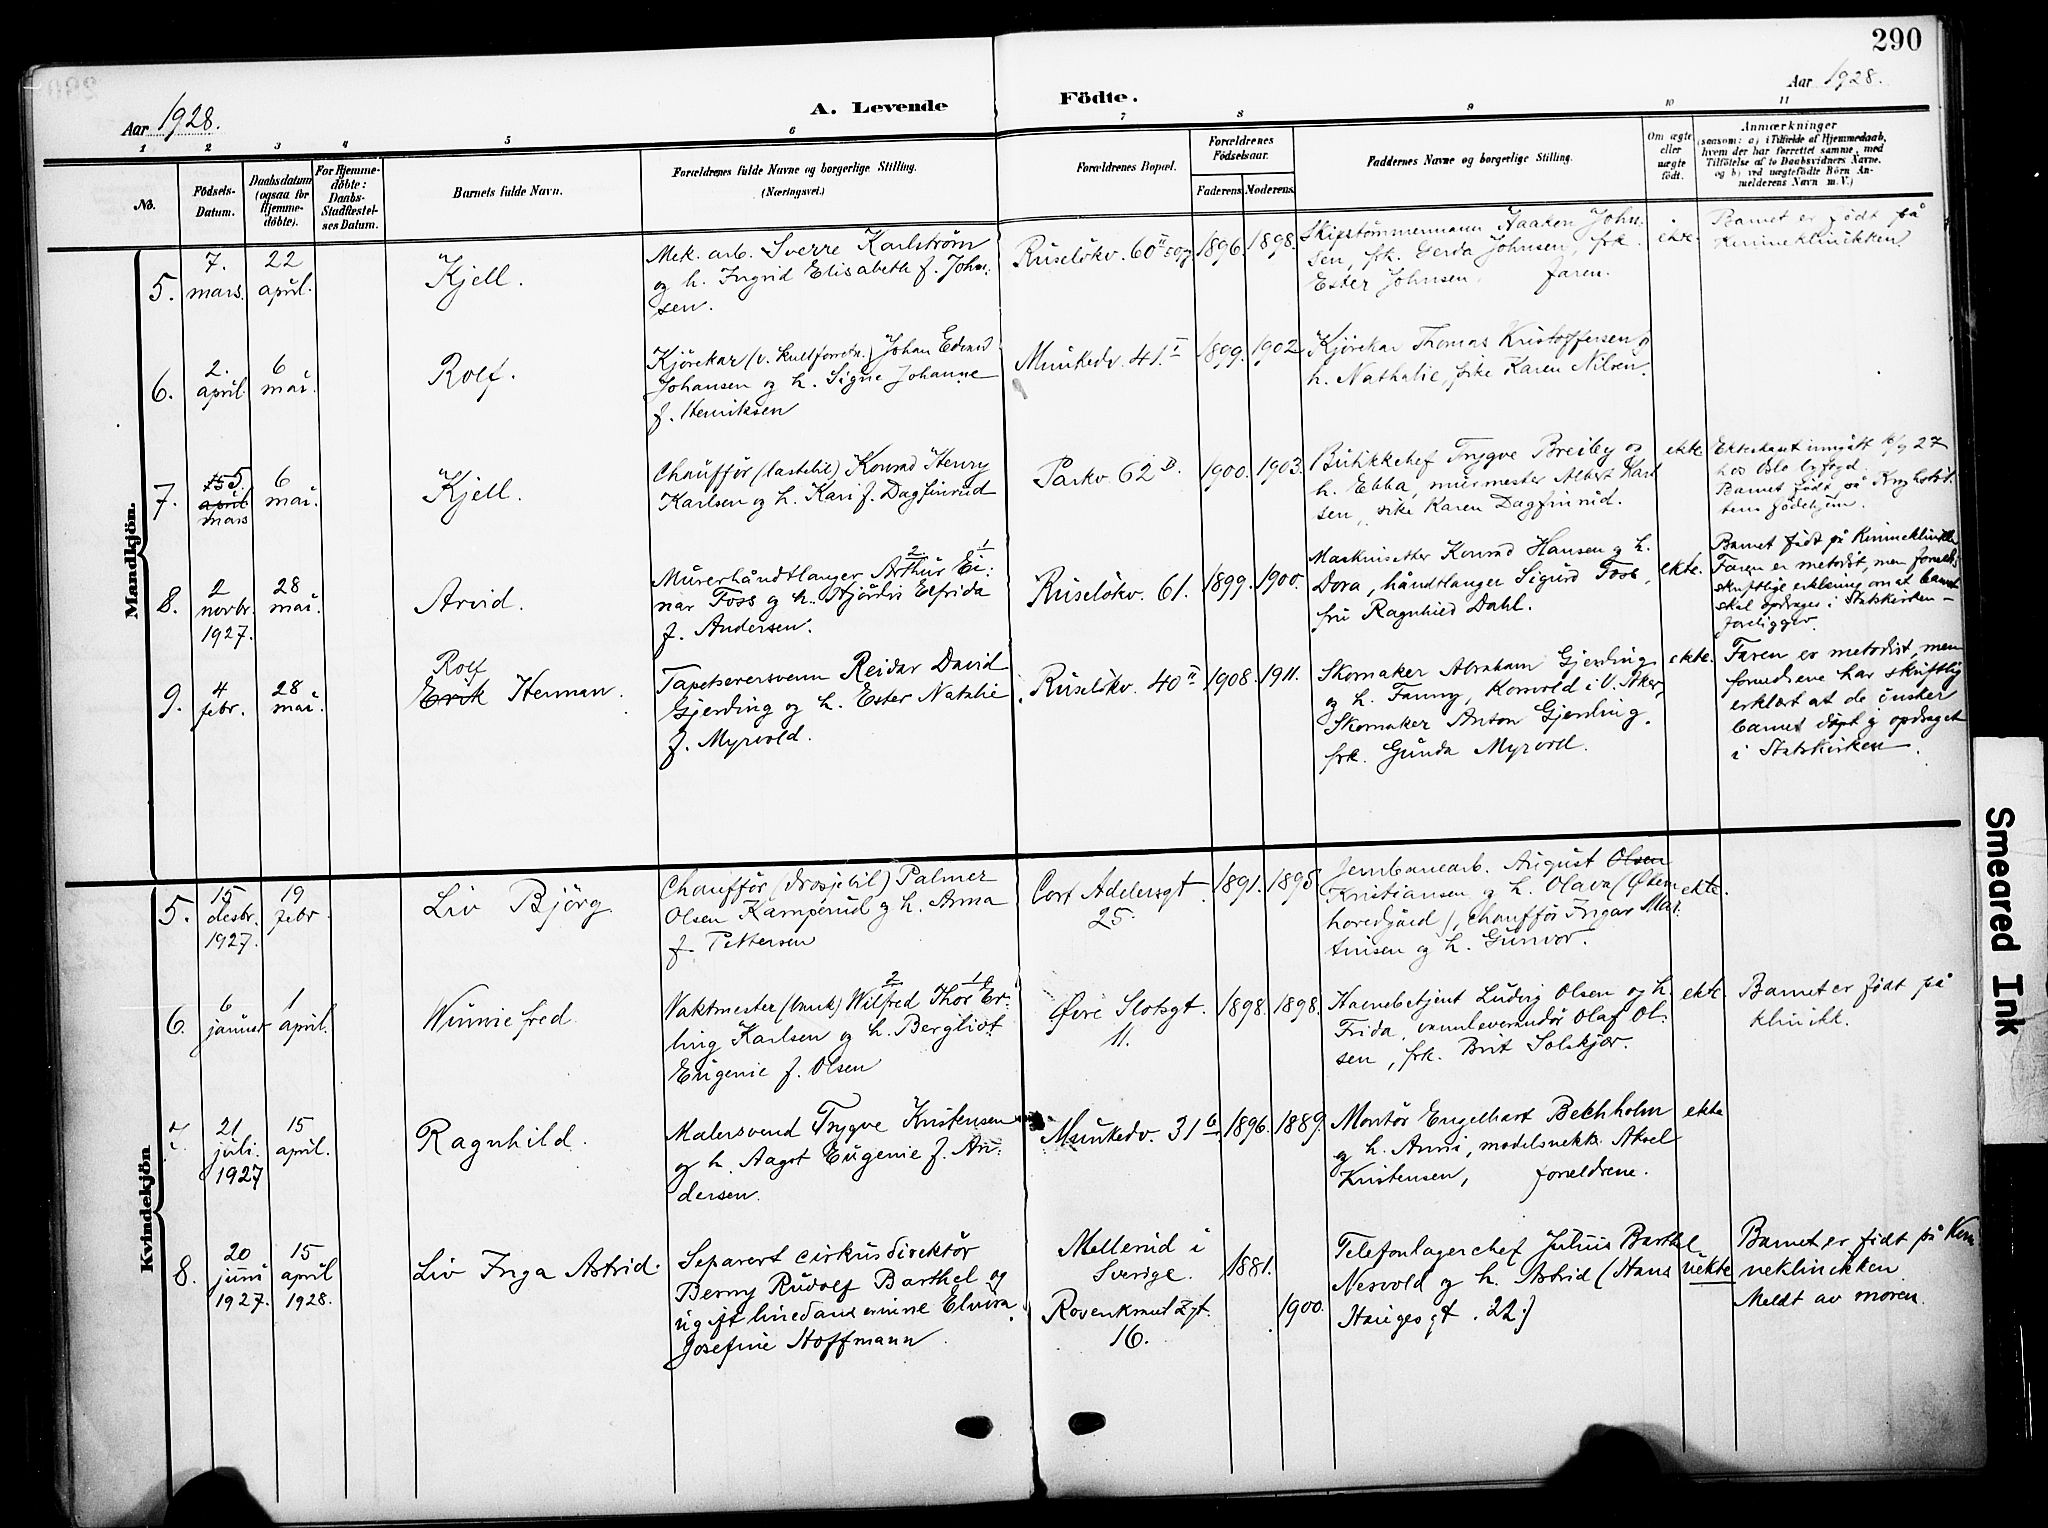 290
Aar 1928.
A. Levende Födte.
Aar 1928.
1 2 3 4 5 6 7 8 9 10 11
No.
Födsels-
Datum.
Daabsdatum
(ogsaa for
Hjemme-
döbte).
For Hjemme-
döbte:
Daabs-
Stadfæstel-
ses Datum.
Barnets fulde Navn.
Forældrenes fulde Navne og borgerlige Stilling.
(Næringsvei.)
Forældrenes Bopæl.
Forældrenes
Födselsaar.
Faderens. Moderens.
Faddernes Navne og borgerlige Stilling.
Om ægte
eller
uægte
født.
Anmærkninger
(saasom: a) i Tilfælde af Hjemmedaab,
hvem der har forrettet samme, med
Tilföielse af to Daabsvidners Navne,
og b) ved uægtefödte Börn An-
melderens Navn m. V.)
Mandkjön.
5.
7.
mars.
22
april.
Kjell.
Mek. arb. Sverre Karlström
og h. Ingrid Elisabeth f. John-
sen.
Ruselökv. 60 II
1896. 1898.
Skipstömmermann Haakon John-
sen, frk. Gerda Johnsen, frk.
Ester Johnsen, faren.
ekte.
Barnet er født på
Kvinneklinikken
6.
2.
april.
6
mai.
Rolf.
Kjörekar Johan Edvard
Johansen og h. Signe Johanne
f. Henriksen
Munkedv. 41. I
1899. 1902
Kjörekar Thomas Kristoffersen og
h. Nathalie, frk. Karen Nilsen.
7.
15 5.
april
mars
6
mai.
Kjell.
Chaufför (lastebil) Konrad Henry
Karlsen og h. Kari f. Dagfinrud
Parkv. 62 D.
1900. 1903.
Butikkchef Trygve Breiby og
h. Ebba, murmester Albert Karl-
sen, frk. Karen Dagfinrud.
ekte
Ekteskapet inngått
27
hos Oslo byfogd.
Barnet født på
fødehjem.
8.
2
novbr.
1927.
28
mai.
Arvid.
2 1
Murerhåndtlanger Arthur Ei-
nar Foss og h. Hjördis Elfrida
f. Andersen.
Ruselökv. 61.
1899. 1900.
Maskinsetter Konrad Hansen og h.
Dora, håndtlanger Sigurd Foss,
fru Ragnhild Dahl.
ekte.
Barnet født på Kvinneklinikken
Faren er metodist, men foreldres
skriftlige erklæring om at barnet
skal opdrages i Statskirken
foreligger.
9.
4
febr.
28
mai.
Rolf
Erik Herman.
Tapetserersvenn Reidar David
Gjerding og h. Ester Natalie
f. Myrvold.
Ruselökv. 40 II
1908. 1911.
Skomaker Abraham Gjerding
og h. Fanny, Konvold i V. Aker,
Skomaker Anton Gjerding,
frk. Gunda Myrvold.
ekte.
Faren er metodist, men
foreldrene har skriftlig
erklært at de önsker
barnet döpt og opdraget
i Statskirken.
Kvindekjön
5.
15
desbr.
1927.
19
febr.
Liv Björg
Chaufför (drosjebil) Palmer
Olsen Kamperud og h. Anna
f. Pettersen
Cort Adelersgt.
25.
1891. 1895
Jernbanearb. August Olsen
Kristiansen og h. Olava (Økern
hovedgård), chauffør Ingar Mar-
tinsen og h. Gunvor.
ekte.
6.
6
januar
1
april.
Winniefred.
2 1
Vaktmester (bank) Wilfred Thor Er-
ling Karlsen og h. Bergliot
Eugenie f. Olsen
Øvre Slotsgt.
11.
1898. 1898.
Havnebetjent Ludvig Olsen og h.
Frida, vannleverandör Olaf Ol-
sen, frk. Brit Solskjær.
ekte.
Barnet er født på
klinikk.
7.
21
juli.
1927
15
april.
Ragnhild.
Malersvend Trygve Kristensen
og h. Aagot Eugenie f. An-
dersen.
Munkedv. 31 b
1896. 1889.
Montör Engelhart Bekkholm
og h. Anni, modelsnekk. Aksel
Kristensen, foreldrene.
ekte
8.
20
juni
1927.
15
april
1928.
Liv Inga Astrid.
Separert cirkusdirektör
Berny Rudolf Barthel og
ugift linedanserinne Elvira
Josefine Hoffmann.
Mellerud i
Sverige.
Rosenkrantzgt.
16.
1881.
1900.
Telefonlagerchef Julius Barthel
Nesvold og h. Astrid (Hans
Haugesgt. 22.)
uekte
Barnet er født på Kvin-
neklinikken
Meldt av moren.
Smeared Ink